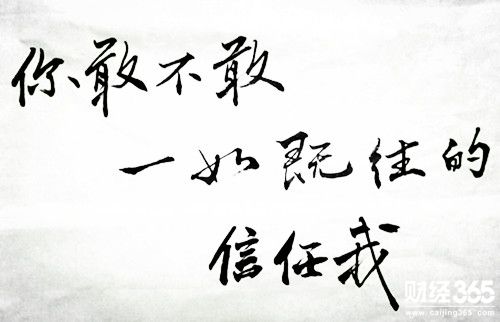 你敢不敢
一如既往的
信任我
财经365
www.caijing365.com